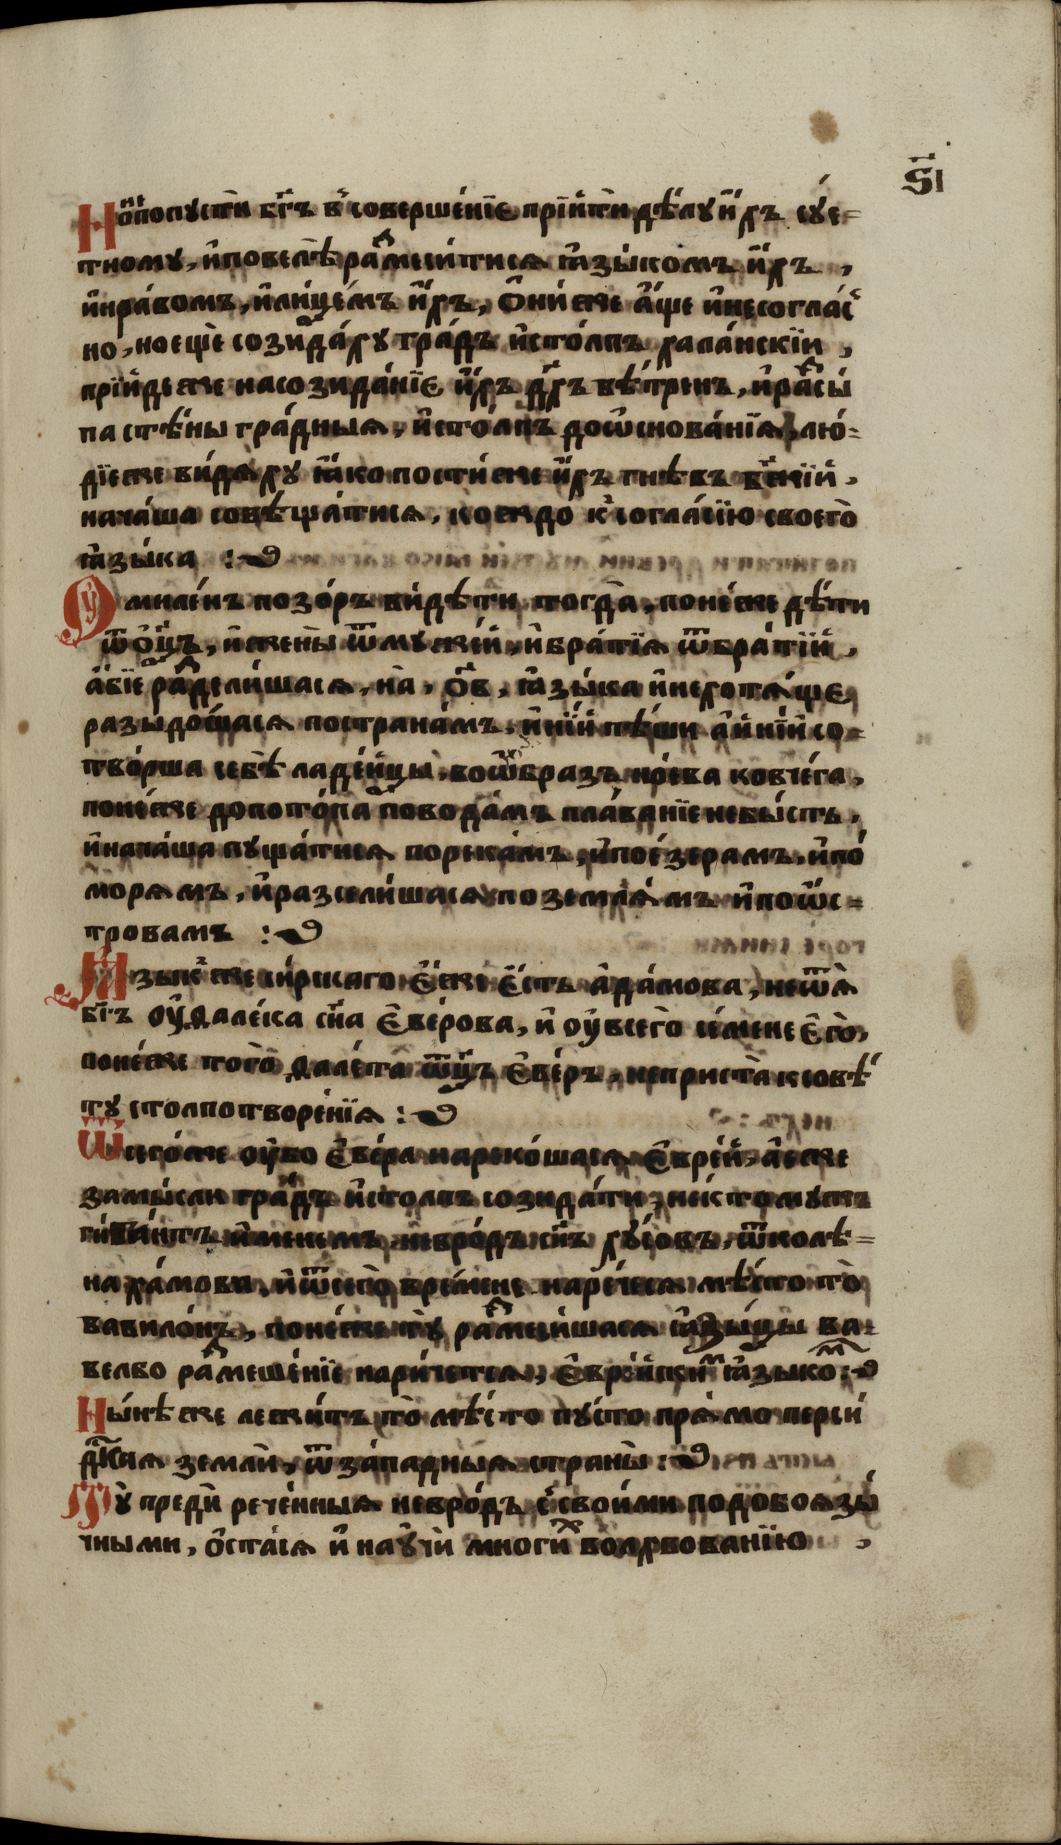 ѕ҃і
Но̀ непопустѝ бг҃ъ в̾ совершенїе прїитѝ дѣлу и҆хъ суе=
тному, и҆ повелѣ̀ размеси́тися ꙗ҆зы́комъ и҆́хъ,
и҆ нра́вомъ, и҆ лице́мъ и҆́хъ, ѻ҆ни́ же а҆́ще и҆ несогла́с
но, но ещѐ созида́ху гра́дъ и҆ сто́лпъ хала́нскїи,
прїи́де же на созида́нїе и҆́хъ дх҃ъ вѣ́тренъ, и҆ разсы́
па стѣ́ны гра́дныя, и҆ сто́лпъ до ѡ҆снова́нїя, лю́=
дїе же ви́дяху ꙗ҆́ко пости́же и҆́хъ гнѣ́въ бж҃їй,
нача́ша совѣ́щатися, ко́ждо к̾ согла́сїю своего̀
ꙗ҆зы́ка :
Оу҆миле́нъ позо́ръ ви́дѣти тогда̀, поне́же дѣ́ти
ѿ ѻ҆ц҃ъ, и҆ жены̀ ѿ муже́й, и҆ бра́тїя ѿ бра́тїй,
а҆́бїе раздели́шася, на̀, ѻ҃в, ꙗ҆зы́ка и҆ нехотя́ще
разыдо́шася по страна́мъ, и҆нїи пѣ́ши а҆ и҆нїи со=
тво́рша себѣ̀ ладе́йцы, во ѡ҆́бразъ но́ева ковче́га,
поне́же до пото́па по вода́мъ пла́ванїе небы́сть,
и҆ нача́ша пуща́тися по река́мъ, и҆ по е҆зерамъ, и҆ по́
моря́мъ, и҆ разсели́шася по земля́мъ и҆ по ѡ҆с=
тровамъ :
Ꙗ҆зы́к же си́рскаго е҆́же е҆́сть а҆да́мова, не ѿя̀
бг҃ъ оу҆ далека сн҃а е҆ве́рова, и҆ оу҆ всего̀ се́мене е҆го̀,
поне́же того̀ далега ѻ҆ц҃ъ е҆ве́ръ, не приста̀ к совѣ́
ту столпотворе́нїя :
Ѿ сего́же оу҆́бо е҆ве́ра нареко́шася е҆вре́й, а҆ е҆же
замы́сли гра́дъ и҆ сто́лпъ созида́ти, и҆сто́му бѣ
ги́га́нтъ и҆менемъ невро́дъ сн҃ъ ху́совъ, ѿ колѣ=
на ха́мова, и҆ ѿ сего̀ вре́мене наре́чеся мѣ́сто то̀
вавило́нъ, поне́же ту̀ размеси́шася ꙗ҆зы́цы ва=
велбо размеше́нїе нарича́ется, е҆вре́йским ꙗ҆зыко́м :
Ны́нѣ же лежи́тъ то̀ мѣ́сто пу́сто пря́мо перси́
дския земли̂, ѿ за́падныя страны̀ :
Ту̀ пре́ди рече́нныя невро́дъ с̾ свои́ми подобоязы́
чными, ѻ҆ста́ся и҆ научи̂ многих волхвованїю,